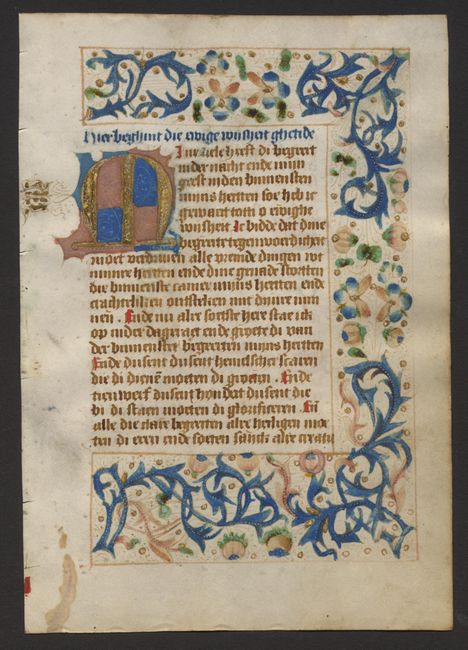 Hier beghint die ewige wijsheit ghetide
Mijn ziele heeft di begeert
in der nacht ende mijn
geest in den binnensten
mijns herten soe heb ic
gewaect tot di o ewighe
wijsheit Ic bidde dat dine
begeerte tegenwoerdicheit
moet verdriven alle vremde dingen wt
minre herten ende dine genade storten
die binnenste camer mijns herten ende
crachteliken ontsteken mit dinre min
nen. Ende nu alre soetste here stae ic
op in der dageraet ende groete di van
der binnenster begeerten mijns herten
Ende dusent dusent hemelscher scaren
die di dienē moeten di groeten. Ende
tienwerf dusent hondat dusent die
bi di staen moeten di glorificeren. Eñ
alle die claer begeerten alre heiligen moe
ten di eren ende soeten sanck alre creatu